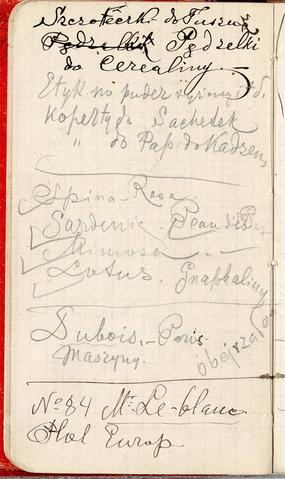 Szczoteczki do Tuszu
Pędzelki Pędzelki
do Cerealiny
Etyk na puder ryżowy
Koperty do Sachetek
" do Pap. do Kadzen
Spina-Rosa
Gardenia. Peau d'Es
Mimosa. —
Lotus. Gnaphalium
Dubois.- Paris
Maszyny. obejrzał
No 84 Mr Le-blanc
Hot Europ